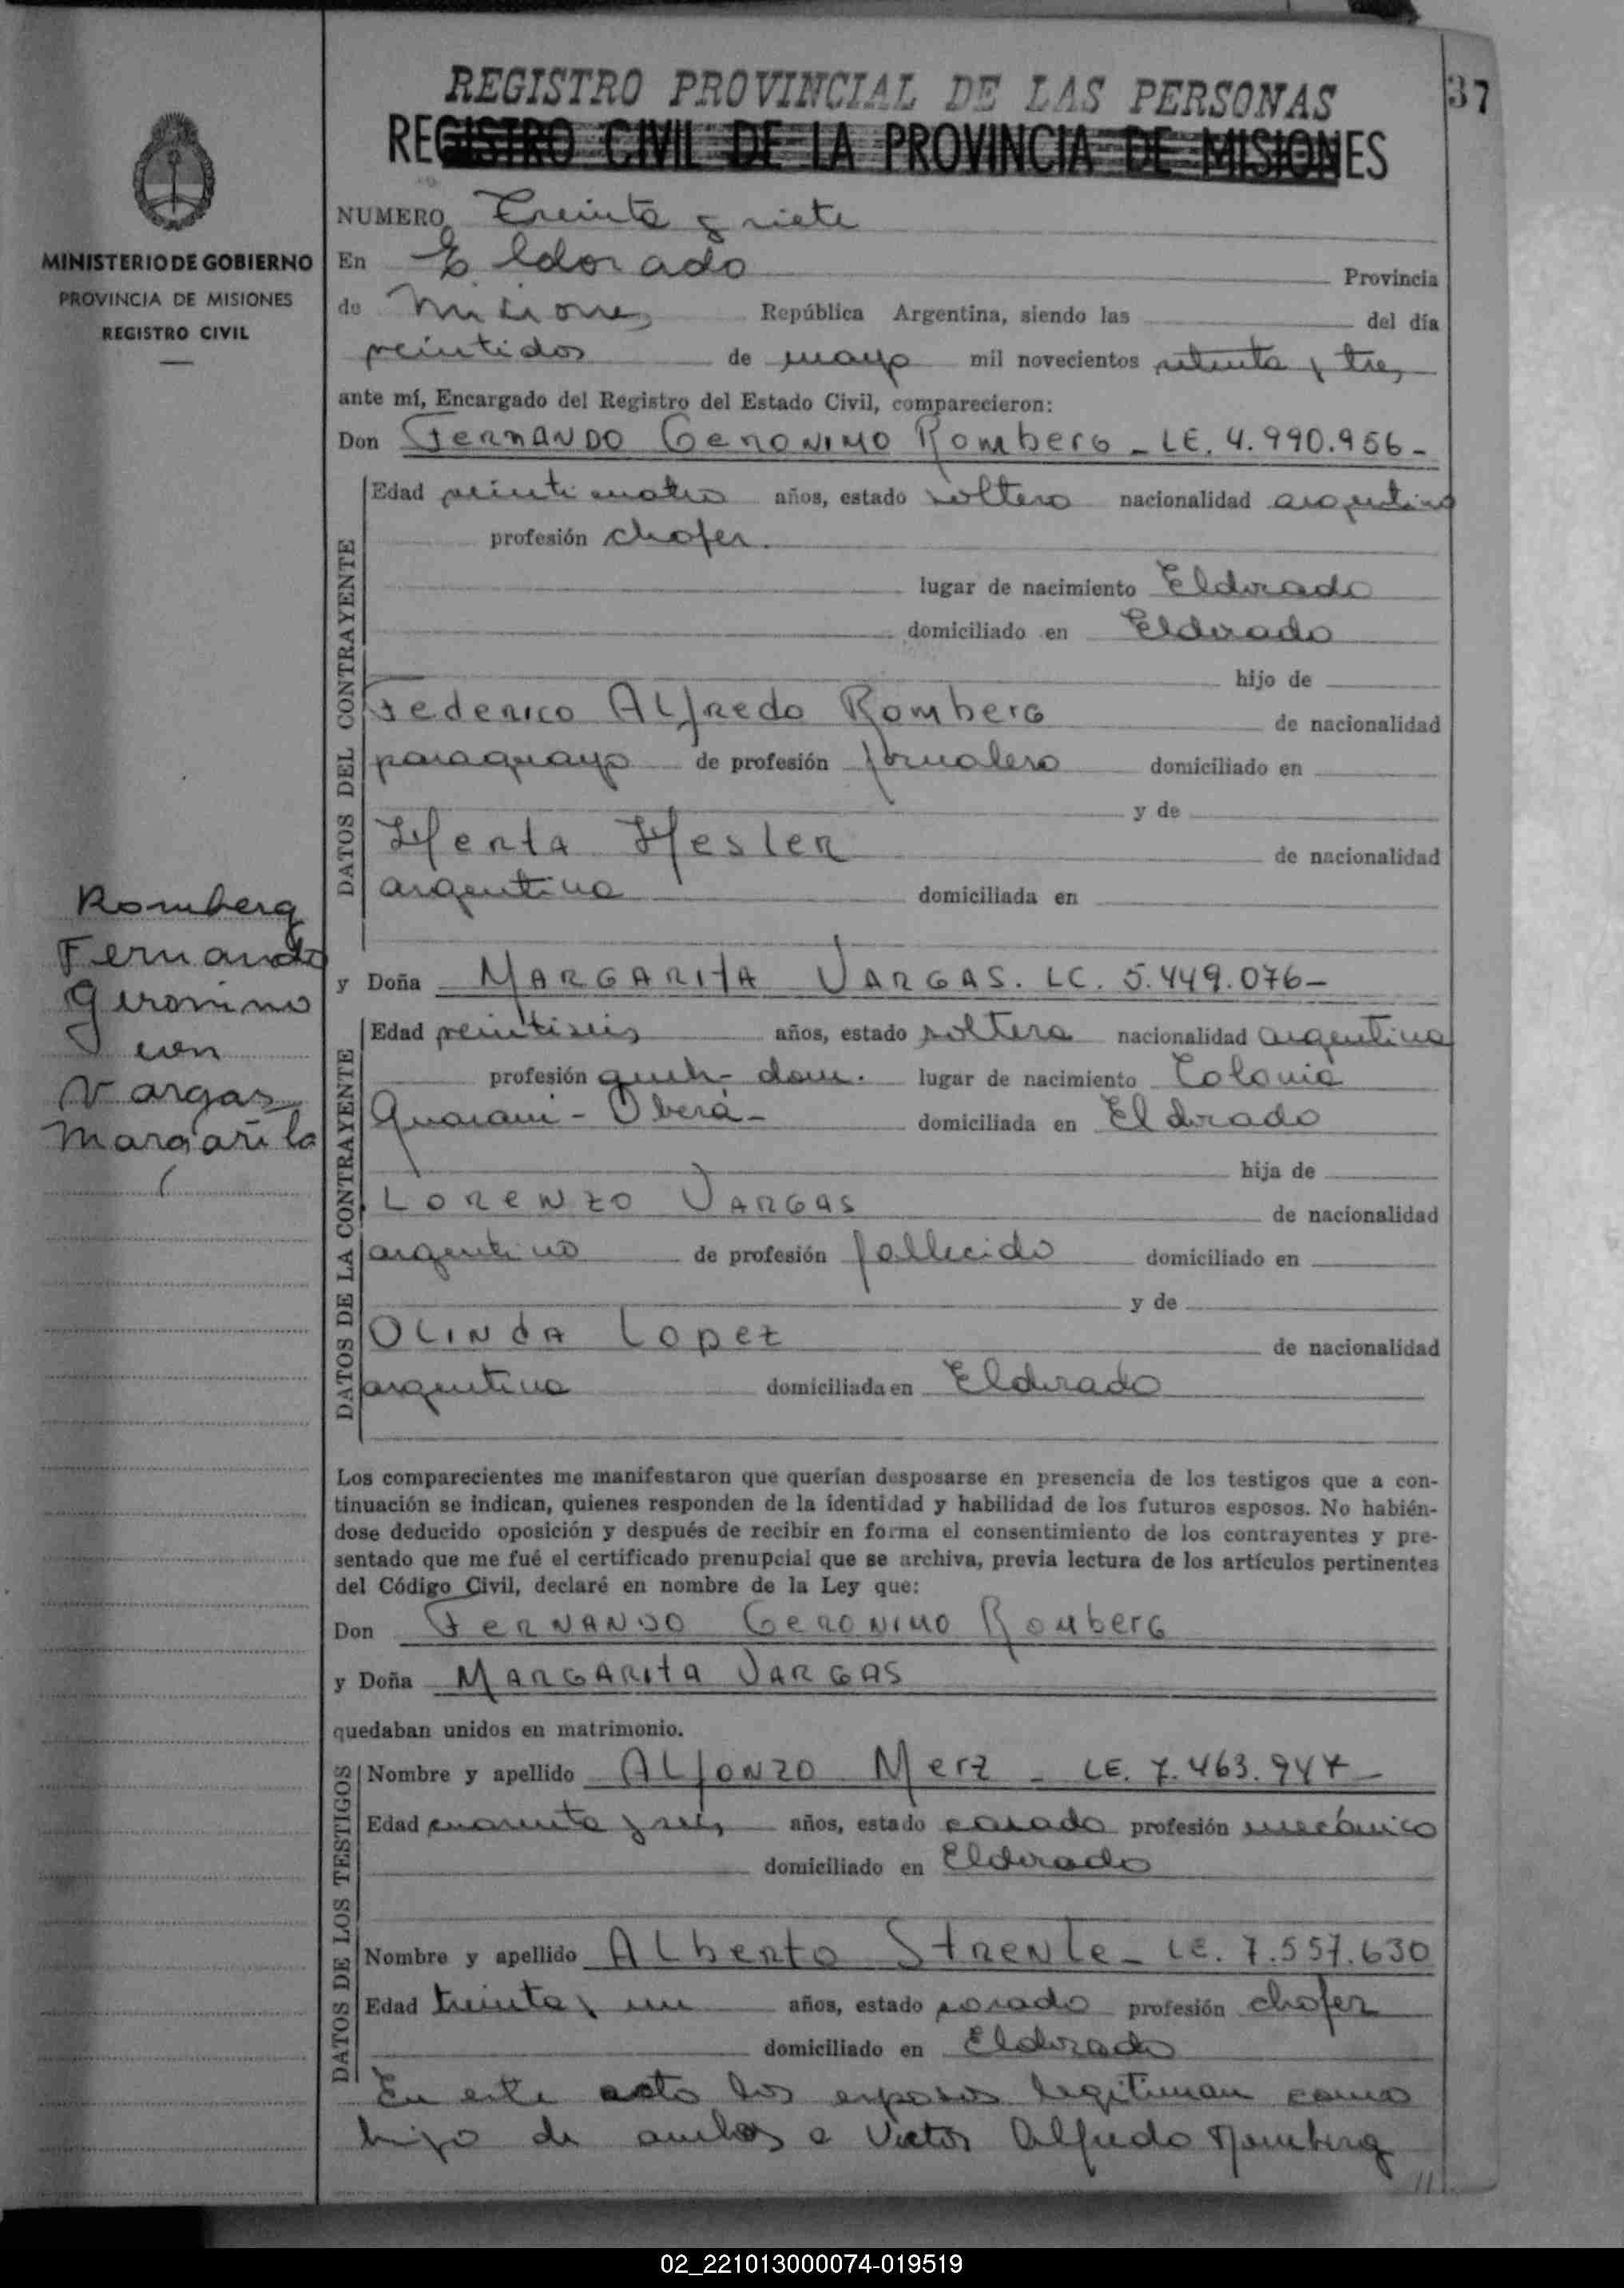 REGISTRO PROVINCIAL DE LAS PERSONAS
37
REGISTRO CIVIL DE LA PROVINCIA DE MISIONES
MINISTERIO DE GOBIERNO
PROVINCIA DE MISIONES
REGISTRO CIVIL
NUMERO Treinta y siete
En Eldorado Provincia
de Misiones República Argentina, siendo las del día
veintidos de mayo mil novecientos setenta y tres
ante mí, Encargado del Registro del Estado Civil, comparecieron:
Don FERNANDO GERONIMO Romberg - LE. 4.990.956-
DATOS DEL CONTRAYENTE
Edad veinticuatro años, estado soltero nacionalidad argentino
profesión chofer.
lugar de nacimiento Eldorado
domiciliado en Eldorado
hijo de
Federico Alfredo Romberg de nacionalidad
paraguayo de profesión jornalero domiciliado en
y de
Herta Hesler de nacionalidad
argentina domiciliada en
Romberg
Fernando
Geronimo
con
Vargas
Margarita
y Doña MARGARITA VARGAS. LC. 5.449.076-
DATOS DE LA CONTRAYENTE
Edad veintiseis años, estado soltera nacionalidad argentina
profesión queh- dom. lugar de nacimiento Colonia
Guarani - Oberá- domiciliada en Eldorado
hija de
LORENZO VARGAS de nacionalidad
argentino de profesión fallecido domiciliado en
y de
OLINdA Lopez de nacionalidad
argentina domiciliada en Eldorado
Los comparecientes me manifestaron que querían desposarse en presencia de los testigos que a con-
tinuación se indican, quienes responden de la identidad y habilidad de los futuros esposos. No habién-
dose deducido oposición y después de recibir en forma el consentimiento de los contrayentes y pre-
sentado que me fué el certificado prenupcial que se archiva, previa lectura de los artículos pertinentes
del Código Civil, declaré en nombre de la Ley que:
Don FERNANDO GERONIMO Romberg
y Doña MARGARITA VARGAS
quedaban unidos en matrimonio.
DATOS DE LOS TESTIGOS
Nombre y apellido ALfONZO Merz - LE. 7.463.947-
Edad cuarenta y seis años, estado casado profesión mecánico
domiciliado en Eldorado
Nombre y apellido ALberto StRenLe- LE. 7.557.630
Edad treinta y un años, estado casado profesión chofer
domiciliado en Eldorado
En este acto los esposos legitiman como
hijo de ambos a Victor Alfredo Romberg
//
02_221013000074-019519